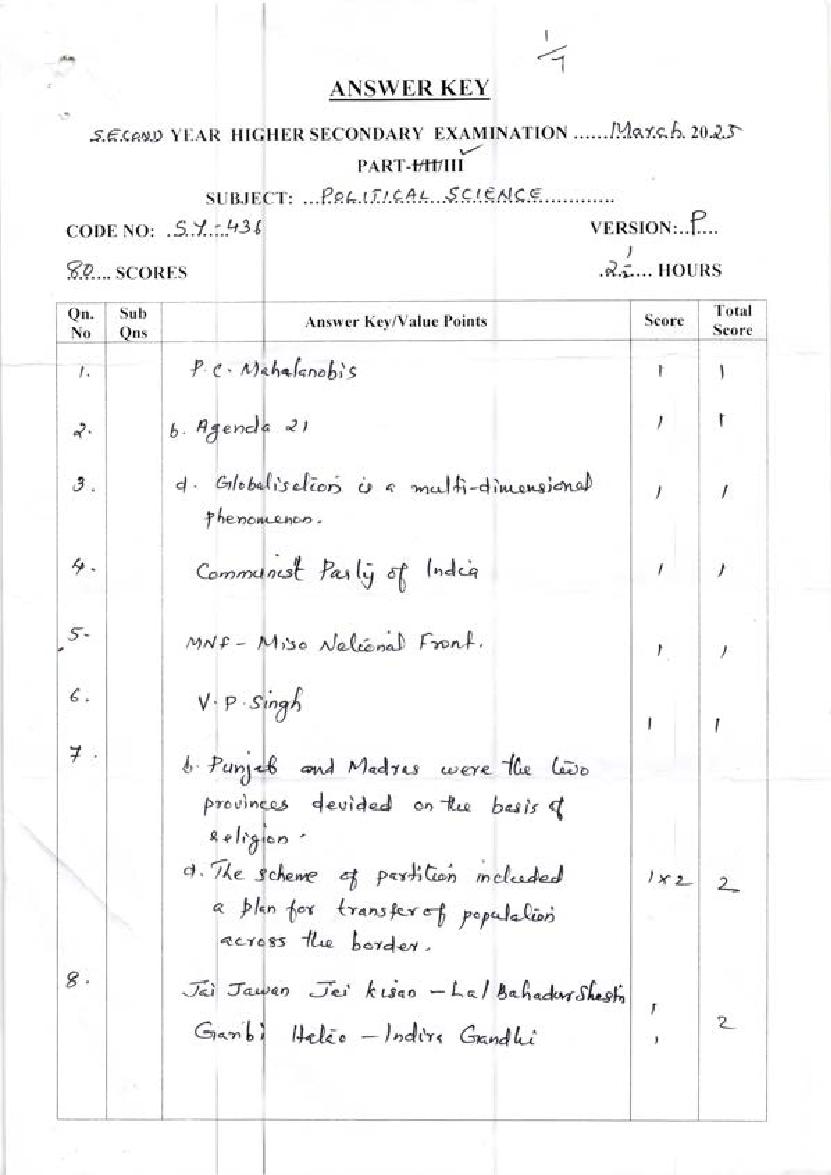 1/7
ANSWER KEY
SECOND YEAR HIGHER SECONDARY EXAMINATION ......March 2025
PART-I/II/III
SUBJECT: ...POLITICAL SCIENCE.............
CODE NO: .SY-436 VERSION:..P....
80.... SCORES .2½.... HOURS
Qn. No Sub Qns Answer Key/Value Points Score Total Score
1. P.C. Mahalanobis 1 1
2. b. Agenda 21 1 1
3. d. Globalisation is a multi-dimensional 1 1
phenomenon.
4. Communist Party of India 1 1
5- MNF - Miso National Front. 1 1
6. V.P. Singh 1 1
7. b. Punjab and Madras were the two
provinces devided on the basis of
religion.
d. The scheme of partition included 1x2 2
a plan for transfer of population
across the border.
8. Jai Jawan Jai Kisan - Lal Bahadur Shastri 1
Garibi Hatao - Indira Gandhi 1 2